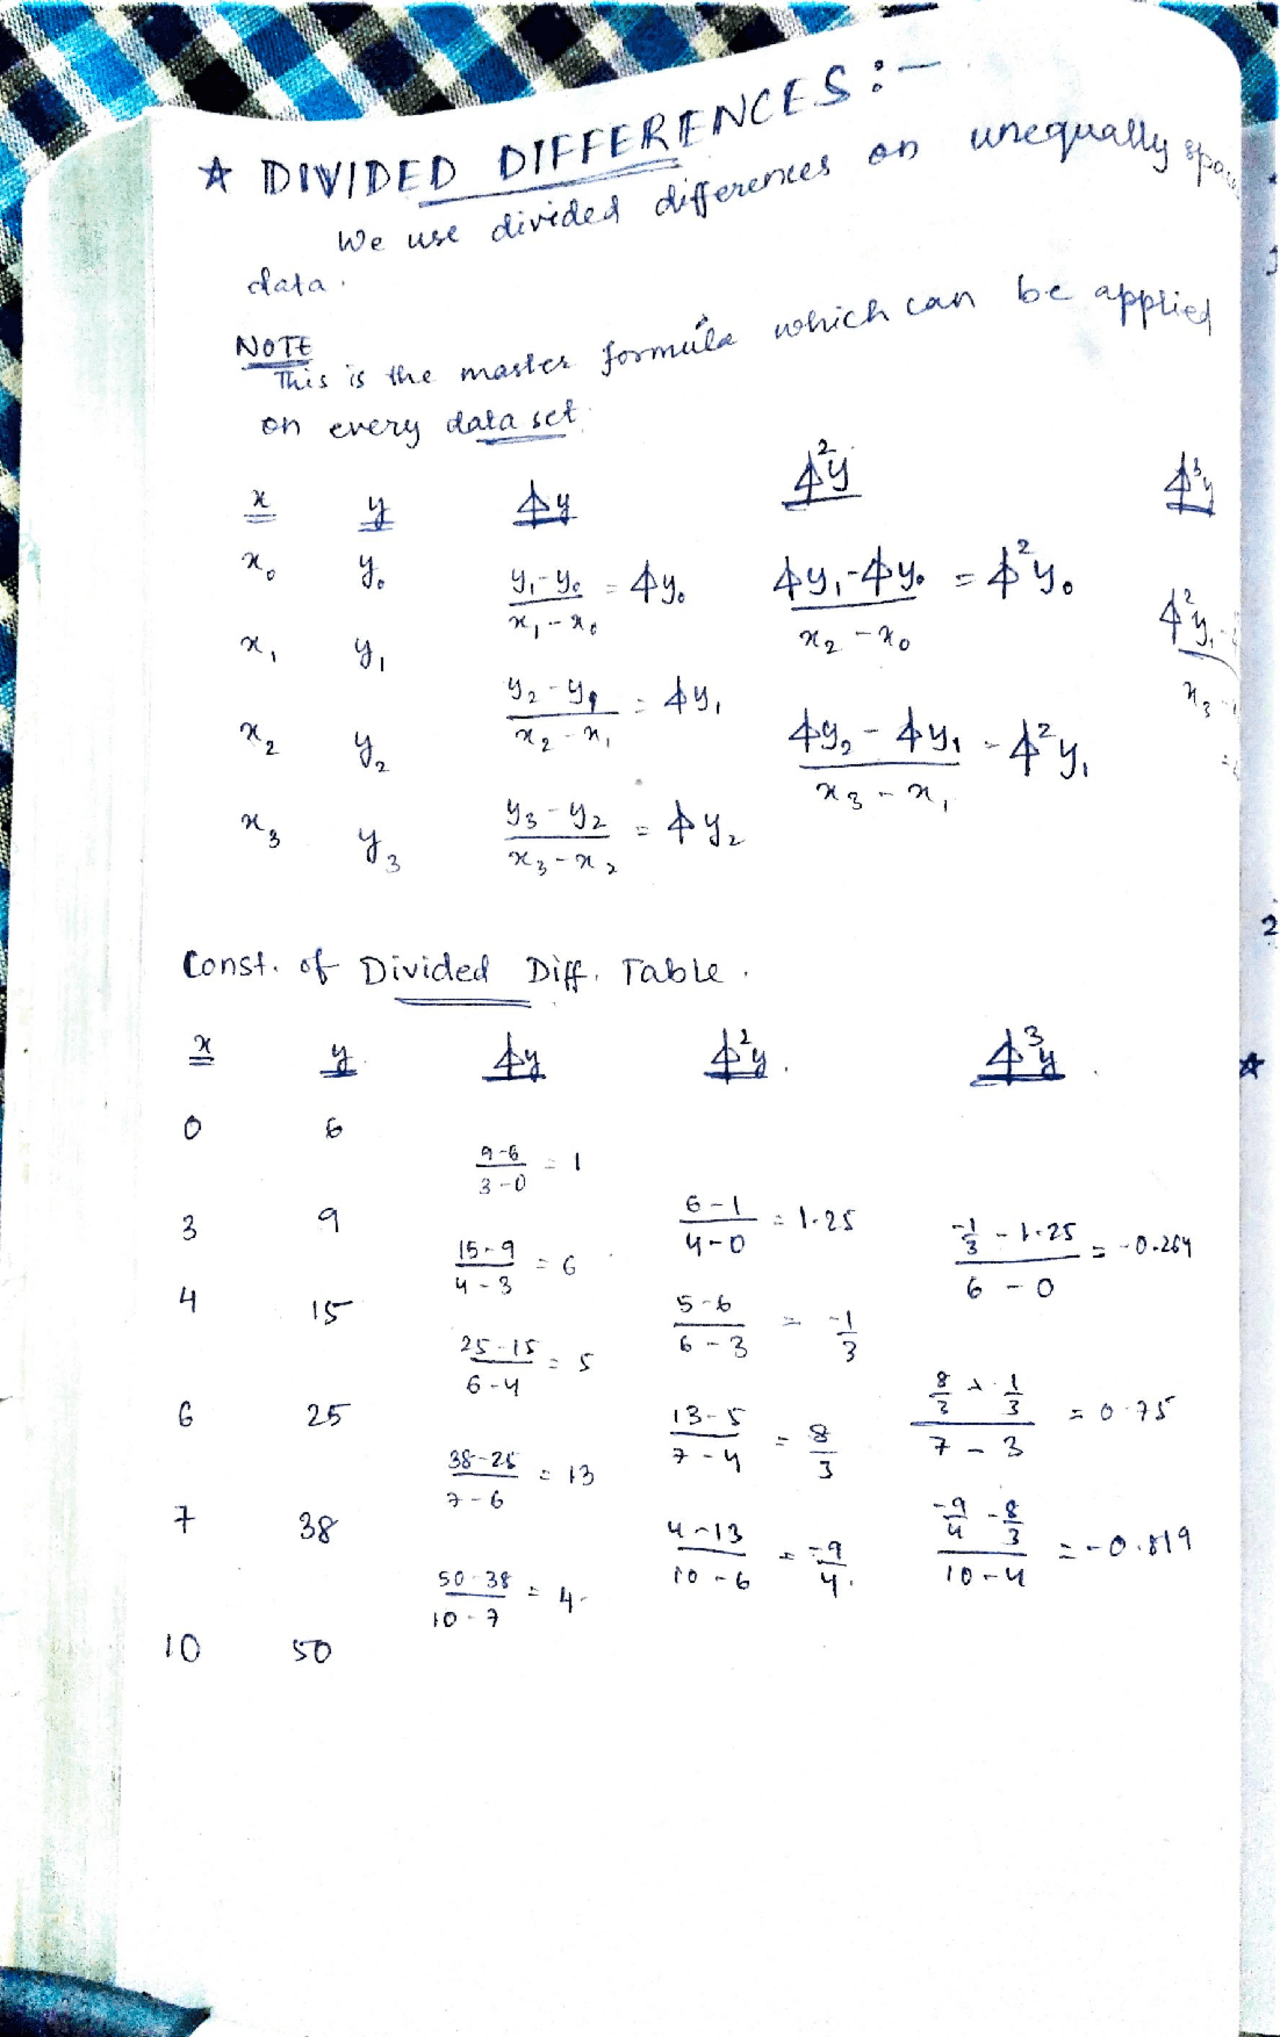 ★ DIVIDED DIFFERENCES :-
We use divided differences on unequally
data.
NOTE
This is the master formula which can be applied
on every data set.
x y ⍋y ⍋²y ⍋³y
x₀ y₀ (y₁-y₀)/(x₁-x₀) = ⍋y₀ (⍋y₁-⍋y₀)/(x₂-x₀) = ⍋²y₀
x₁ y₁
(y₂-y₁)/(x₂-x₁) = ⍋y₁
x₂ y₂ (⍋y₂-⍋y₁)/(x₃-x₁) - ⍋²y₁
x₃ y₃ (y₃-y₂)/(x₃-x₂) = ⍋y₂
Const. of Divided Diff. Table.
x y ⍋y ⍋²y. ⍋³y.
0 6
(9-6)/(3-0) = 1
3 9 (6-1)/(4-0) = 1.25 (-1/3 - 1.25)/(6-0) = -0.264
(15-9)/(4-3) = 6
4 15 (5-6)/(6-3) = -1/3
(25-15)/(6-4) = 5
6 25 (13-5)/(7-4) = 8/3 (8/3 + 1/3)/(7-3) = 0.75
(38-25)/(7-6) = 13
7 38 (4-13)/(10-6) = -9/4. (-9/4 - 8/3)/(10-4) = -0.819
(50-38)/(10-7) = 4
10 50
2
★